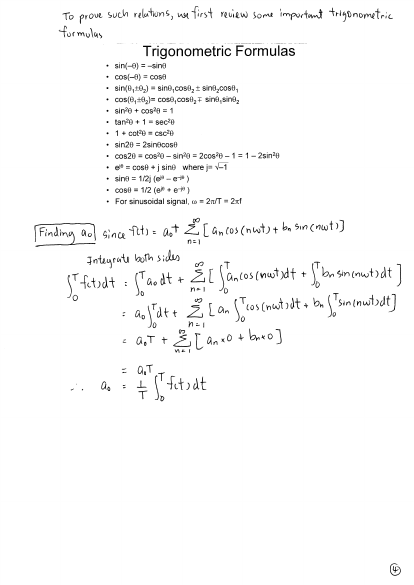 To prove such relations, we first review some important trigonometric
formulas
Trigonometric Formulas
• sin(–θ) = –sinθ
• cos(–θ) = cosθ
• sin(θ₁±θ₂) = sinθ₁cosθ₂ ± sinθ₂cosθ₁
• cos(θ₁±θ₂)= cosθ₁cosθ₂ ∓ sinθ₁sinθ₂
• sin²θ + cos²θ = 1
• tan²θ + 1 = sec²θ
• 1 + cot²θ = csc²θ
• sin2θ = 2sinθcosθ
• cos2θ = cos²θ – sin²θ = 2cos²θ – 1 = 1 – 2sin²θ
• e^{jθ} = cosθ + j sinθ where j= √–1
• sinθ = 1/2j (e^{jθ} – e^{–jθ} )
• cosθ = 1/2 (e^{jθ} + e^{–jθ} )
• For sinusoidal signal, ω = 2π/T = 2πf
Finding a₀ since f(t) = a₀ + ∑_{n=1}^{∞} [ aₙ cos(nωt) + bₙ sin(nωt)]
Integrate both sides
∫₀ᵀ f(t)dt = ∫₀ᵀ a₀ dt + ∑_{n=1}^{∞} [ ∫₀ᵀ aₙ cos(nωt)dt + ∫₀ᵀ bₙ sin(nωt)dt ]
= a₀ ∫₀ᵀ dt + ∑_{n=1}^{∞} [ aₙ ∫₀ᵀ cos(nωt)dt + bₙ ∫₀ᵀ sin(nωt)dt]
= a₀T + ∑_{n=1}^{∞} [ aₙ*0 + bₙ*0 ]
= a₀T
∴ a₀ = 1/T ∫₀ᵀ f(t)dt
④